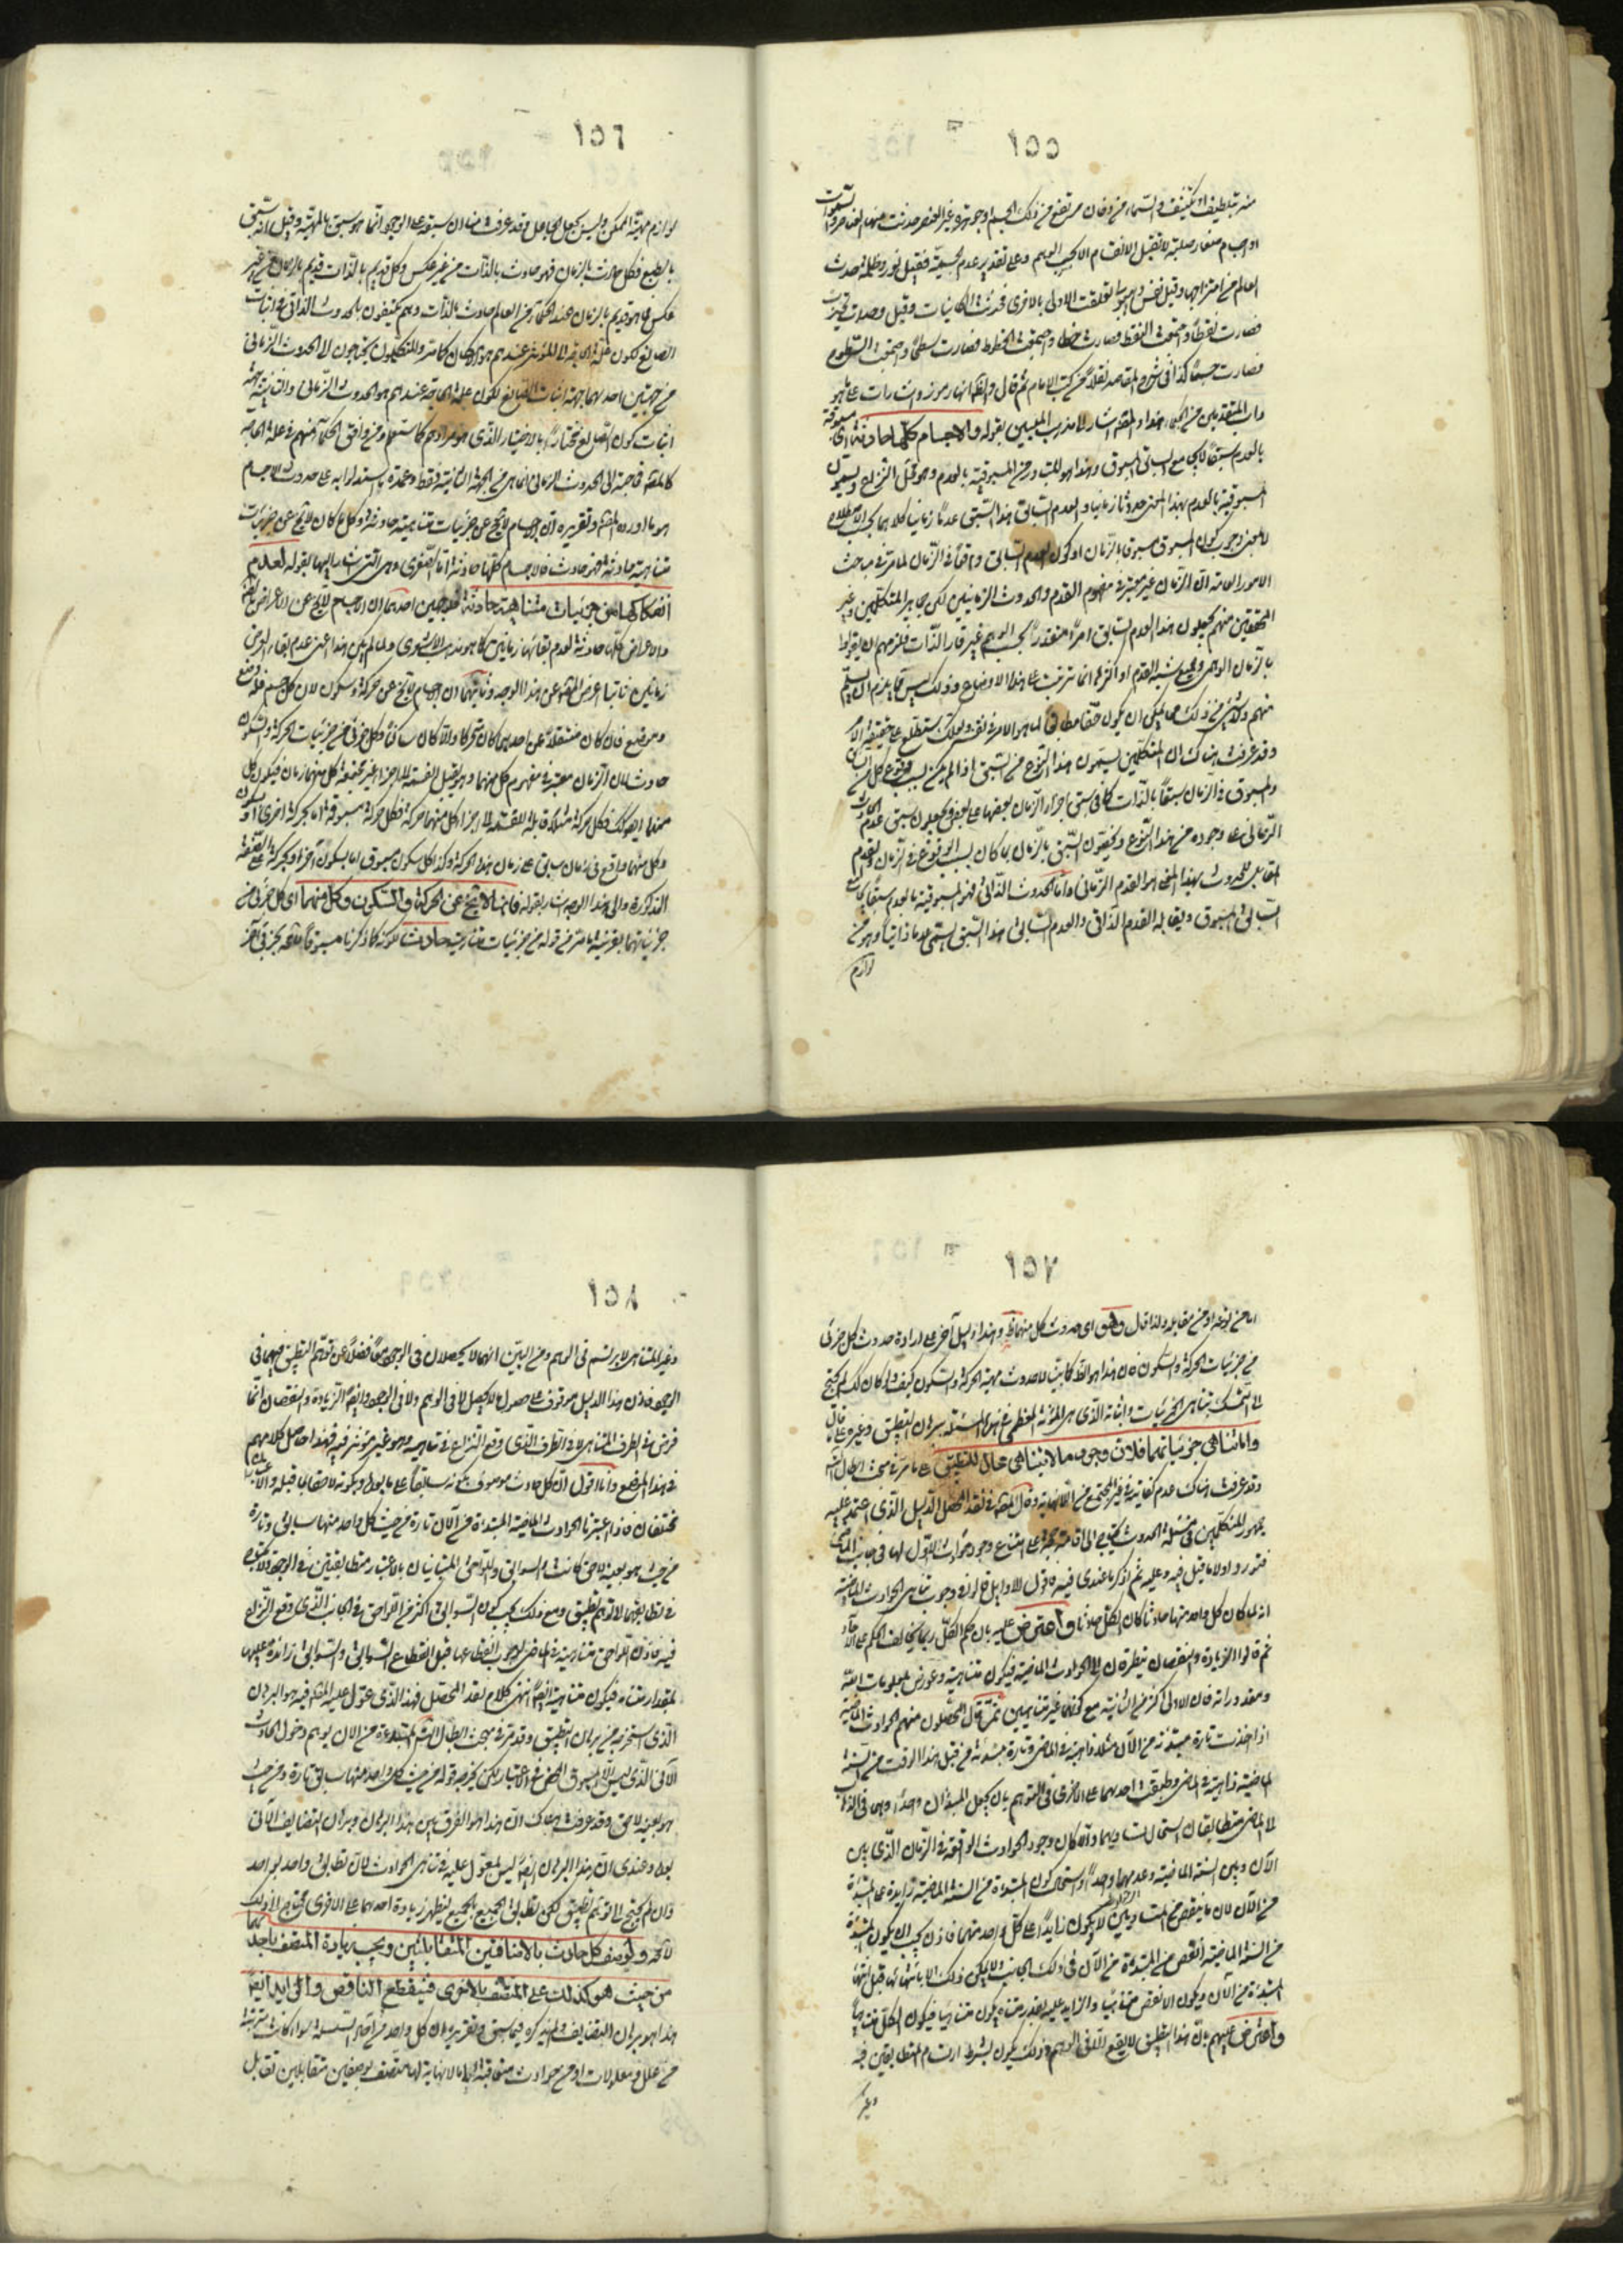 ١٥٥
منه بتلطيف او تكثيف والسماء من دخان مرتفع من ذلك الجسم او جوهرة غير العنصر حدثت منها العناصر والسموات
او اجسام صغار صلبة لا تقبل الانقسام الا بحسب الوهم وعلى تقدير عدم الجسمية فقيل نور وظلمة حدث
العالم من امتزاجهما وقيل نفس وهيولى تعلقت الاولى بالاخرى فحدثت الكائنات وقيل وحدات تحيزت
فصارت نقطا واجتمعت النقط فصارت خطا واجتمعت الخطوط فصارت سطحا واجتمعت السطوح
فصارت جسما كذا فى شرح المقاصد نقلا من كتب الامام ثم قال والظاهر انها رموز واشارات على ما هو
داب المتقدمين من الحكماء هذا والمصنف اشار الى مذهب المليين بقوله والاجسام كلها حادثة اى مسبوقة
بالعدم سبقا لا يجامع السابق المسبوق وهذا هو المتبادر من المسبوقية بالعدم وهو محل النزاع ويسمون
المسبوقية بالعدم بهذا المعنى حدوثا زمانيا والعدم السابق هذا السبق عدما زمانيا كلاهما بحسب الاصطلاح
لا بمعنى وجوب كون المسبوق مسبوقا بالزمان او كون العدم السابق واقعا فى الزمان لما مر فى مباحث
الامور العامة ان الزمان غير معتبر فى مفهوم القدم والحدوث الزمانيين لكن جماهير المتكلمين وغير
المحققين منهم يجعلون هذا العدم السابق امرا متقدرا بحسب الوهم غير قار الذات فلزمهم ان يقولوا
بالزمان الوهمى وجميع شبه القدم او اكثرها انما ترتبت على هذا الاوضاع وذلك ليس مما يلزم ان يسلم
منهم وليس شىء من ذلك مما يمكن ان يكون حقا مطابقا لما هو الامر فى نفسه ولعلك ستطلع على حقيقة الامر
وقد عرفت هناك ان المتكلمين يسمون هذا النوع من السبق اذا لم يكن بسبب وقوع كل من السابق
والمسبوق فى الزمان سبقا بالذات كما فى سبق اجزاء الزمان بعضها على بعض ويجعلون سبق عدم الحادث
الزمانى على وجوده من هذا النوع ويخصون السبق بالزمان بما كان بسبب الوقوع فى الزمان والقدم
المقابل للحدوث بهذا المعنى هو القدم الزمانى واما الحدوث الذاتى فهو المسبوقية بالعدم سبقا يجامع
السابق المسبوق ويقابله القدم الذاتى والعدم السابق هذا السبق يسمى عدما ذاتيا وهو من
لوازم
١٥٦
لوازم مهية الممكن وليس بجعل الجاعل وقد عرفت هناك ان سبقه على الوجود انما هو سبق بالمهية وقيل انه سبق
بالطبع فكل حادث بالزمان فهو حادث بالذات من غير عكس وكل قديم بالذات قديم بالزمان من غير
عكس فما هو قديم بالزمان عند الحكماء من العالم حادث بالذات وهم يكتفون بالحدوث الذاتى فى اثبات
الصانع لكون علة الحاجة الى المؤثر عندهم هو الامكان كما مر والمتكلمون يحتاجون الى الحدوث الزمانى
من جهتين احدهما جهة اثبات الصانع لكون علة الحاجة عندهم هو الحدوث الزمانى والثانية جهة
اثبات كون الصانع مختارا بالاختيار الذى هو مرادهم كما ستعلم ومن وافق الحكماء منهم فى علة الحاجة
كالمصنف فحاجته الى الحدوث الزمانى انما هى من الجهة الثانية فقط وعمدة ما استدلوا به على حدوث الاجسام
هو ما اورده المصنف وتقريره ان الاجسام لا تخلو عن جزئيات متناهية حادثة وكل ما كان لا يخلو عن جزئيات
متناهية حادثة فهو حادث فالاجسام كلها حادثة اما الصغرى وهى التى اشار اليها بقوله لعدم
انفكاكها من جزئيات متناهية حادثة فلوجهين احدهما ان الاجسام لا تخلو عن الاعراض
والاعراض كلها حادثة لعدم بقائها زمانين كما هو مذهب الاشعرى ولما لم يكن هذا اعنى عدم بقاء العرض
زمانين ثابتا اعرض المصنف عن هذا الوجه وثانيهما ان الاجسام لا تخلو عن حركة وسكون لان كل جسم فله وضع
وموضع فان كان منتقلا عن احدهما كان متحركا والا كان ساكنا وكل جزئى من جزئيات الحركة والسكون
حادث لان الزمان معتبر فى مفهوم كل منهما وهو يقبل القسمة الى اجزاء غير مجتمعة كل منها زمان فيكون كل
منهما ايضا كذلك فكل حركة مثلا قابلة للقسمة الى اجزاء كل منها حركة فكل حركة مسبوقة اما بحركة اخرى او سكون
وكل منهما واقع فى زمان سابق على زمان هذه الحركة وكذا كل سكون مسبوق اما بسكون آخر او بحركة على الصفة
المذكورة والى هذا الوجه اشار بقوله فانها لا تخلو عن الحركة والسكون وكل منهما اى كل جزئى من
جزئياتهما بقرينة ما مر من قوله من جزئيات متناهية حادث لكونه كما ذكرنا مسبوقا بجزئى آخر
١٥٧
اما من نوعه او من مقابله ولذا قال وهو اى حدوث كل منهما ظاهر وهذا دليل آخر على ارادة حدوث كل جزئى
من جزئيات الحركة والسكون فان هذا هو الظاهر كما بينا لا حدوث مهية الحركة والسكون كيف ولو كان كذلك لم يحتج
الى التمسك بتناهى الجزئيات واثباته الذى هى المؤنة العظمى فى هذه المسئلة ببرهان التطبيق وغيره على ما قال
واما تناهى جزئياتهما فلان وجود ما لا يتناهى محال للتطبيق على ما مر فى مبحث ابطال التسلسل
وقد عرفت هناك عدم كفايته فى غير المجتمع من اللانهاية وقال المصنف فى نقد المحصل الدليل الذى اعتمد عليه
جمهور المتكلمين فى مسئلة الحدوث يحتاج الى اقامة حجة على امتناع وجود حوادث لا اول لها فى جانب الماضى
فنورد اولا ما قيل فيه وعليه ثم اذكر ما عندى فيه فاقول الاوايل قالوا فى وجوب تناهى الحوادث الماضية
انه لما كان كل واحد منها حادثا كان الكل حادثا واعترض عليه بان حكم الكل ربما يخالف الحكم على الآحاد
ثم قالوا الزيادة والنقصان يتطرقان الى الحوادث الماضية فيكون متناهية وعورض بمعلومات الله
ومقدوراته فان الاولى اكثر من الثانية مع كونهما غير متناهيين ثم قال المحصلون منهم الحوادث الماضية
اذا اخذت تارة مبتدئة من الآن مثلا ذاهبة فى الماضى وتارة مبتدئة من قبل هذا الوقت من السنة
الماضية ذاهبة فى الماضى وطبقت احدهما على الاخرى فى التوهم بان يجعل المبدءان واحدا وهما فى الذهاب
الى الماضى متطابقان استحال تساويهما والا كان وجود الحوادث الواقعة فى الزمان الذى بين
الآن وبين السنة الماضية وعدمها واحدا واستحال كون المبتدئة من السنة الماضية زايدة على المبتدئة
من الآن لان ما ينقص من المتساويين لا يكون زايدا على كل واحد منهما فاذن يجب ان يكون المبتدئة
من السنة الماضية انقص من المبتدئة من الآن فى ذلك الجانب ولا يمكن ذلك الا بانتهائها قبل انتهاء
المبتدئة من الآن ويكون الانقص متناهيا والزايد عليه بقدر متناه يكون متناهيا فيكون الكل متناهيا
واعترض عليهم بان هذا التطبيق لا يقع الا فى الوهم وذلك يكون بشرط ارتسام المتطابقين فيه
وغير
١٥٨
وغير المتناهى لا يرتسم فى الوهم ومن البين انهما لا يحصلان فى الوجود معا فضلا عن توهم التطبيق فيهما فى
الوجود فاذن هذا الدليل موقوف على حصول ما لا يحصل لا فى الوهم ولا فى الوجود وايضا الزيادة والنقصان انما
فرض فى الطرف المتناهى لا فى الطرف الذى وقع النزاع فى تناهيه وهو غير مؤثر فيه فهذا حاصل كلامهم
فى هذا الموضع وانا اقول ان كل حادث موصوف بكونه سابقا على ما بعده وبكونه لاحقا بما قبله والاعتباران
مختلفان فاذا اعتبرنا الحوادث الماضية المبتدئة من الآن تارة من حيث كل واحد منها سابق وتارة
من حيث هو بعينه لاحق كانت السوابق واللواحق المتباينان بالاعتبار متطابقتين فى الوجود ولا يحتاج
فى تطابقهما الى توهم تطبيق ومع ذلك يجب كون السوابق اكثر من اللواحق فى الجانب الذى وقع النزاع
فيه فاذن اللواحق متناهية فى الماضى لوجوب انقطاعها قبل انقطاع السوابق والسوابق زائدة عليها
بمقدار متناه فيكون متناهية ايضا انتهى كلام نقد المحصل فهذا الذى عول عليه المصنف فيه هو البرهان
الذى استخرجه من برهان التطبيق وقد مر فى مبحث ابطال التسلسل المبتدئة من الآن يوهم دخول الحادث
الآنى الذى ليس الا المسبوق المحض فى الاعتبار لكن يخرجه قوله من حيث كل واحد منها سابق تارة ومن حيث
هو بعينه لاحق وقد عرفت هناك ان هذا هو الفرق بين هذا البرهان وبرهان التضايف الآتى
بعد وعندى ان هذا البرهان ايضا ليس لمعول عليه فى تناهى الحوادث لان تطابق واحد بواحد
وان لم يحتج الى توهم تطبيق لكن تطابق الجميع بالجميع ليظهر زيادة احدهما على الاخرى محتاج الى ذلك
لا محه ويوصف كل حادث بالاضافتين المتقابلتين ويجب زيادة المتصف باحدهما
من حيث هو كذلك على المتصف بالاخرى فينقطع الناقص والزايد ايضا
هذا هو برهان التضايف ولم يذكره فيما سبق وتقريره ان كل واحد من آحاد السلسلة سواء كانت مترتبة
من علل ومعلولات او من حوادث متعاقبة الى ما لا نهاية لها متصف بوصفين متقابلين تقابل